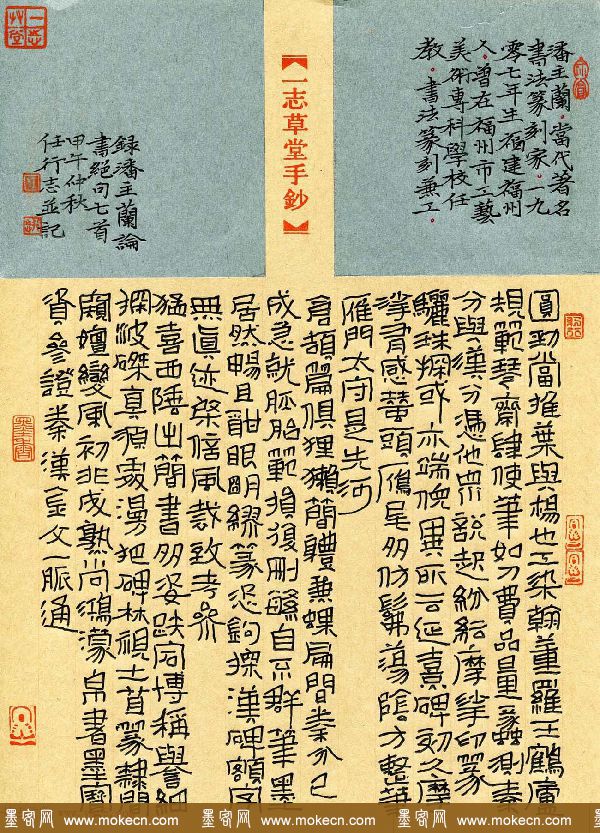 潘主蘭，當代著名
書法篆刻家，一九
零七年生福建福州
人，曾在福州市工藝
美術專科學校任
教，書法篆刻兼工。
【一志草堂手鈔】
錄潘主蘭論
書絕句七首
甲午仲秋
任行志並記
一志草堂
圓勁當推葉與楊也工染翰董羅王鶴廬
規範琴齋肆使筆如刀費品量蠡測秦
分與漢分憑他眾說起紛紛摩挲印篆
驪珠探或亦端倪異所云延熹碑刻久摩
挲有感蠶頭雁尾多仿髴蕩陰方整
雁門太守是先河
倉頡篇俱狸獺簡體兼蝶扁間秦分已
成急就胚胎範損復刪繇自不群筆墨
居然暢且酣眼明繆篆恣鉤探漢碑額字
無真迹信風裁致考參
猛喜西陲出簡書多姿跌宕博稱譽細
探波磔真源委漫把碑林視土苴篆隸間
廁嬗變風初非成熟尚鴻濛帛書墨寶
資參證秦漢金文一脈通
墨客网 www.mokecn.com 墨客网 www.mokecn.com 墨客网 www.mokecn.com